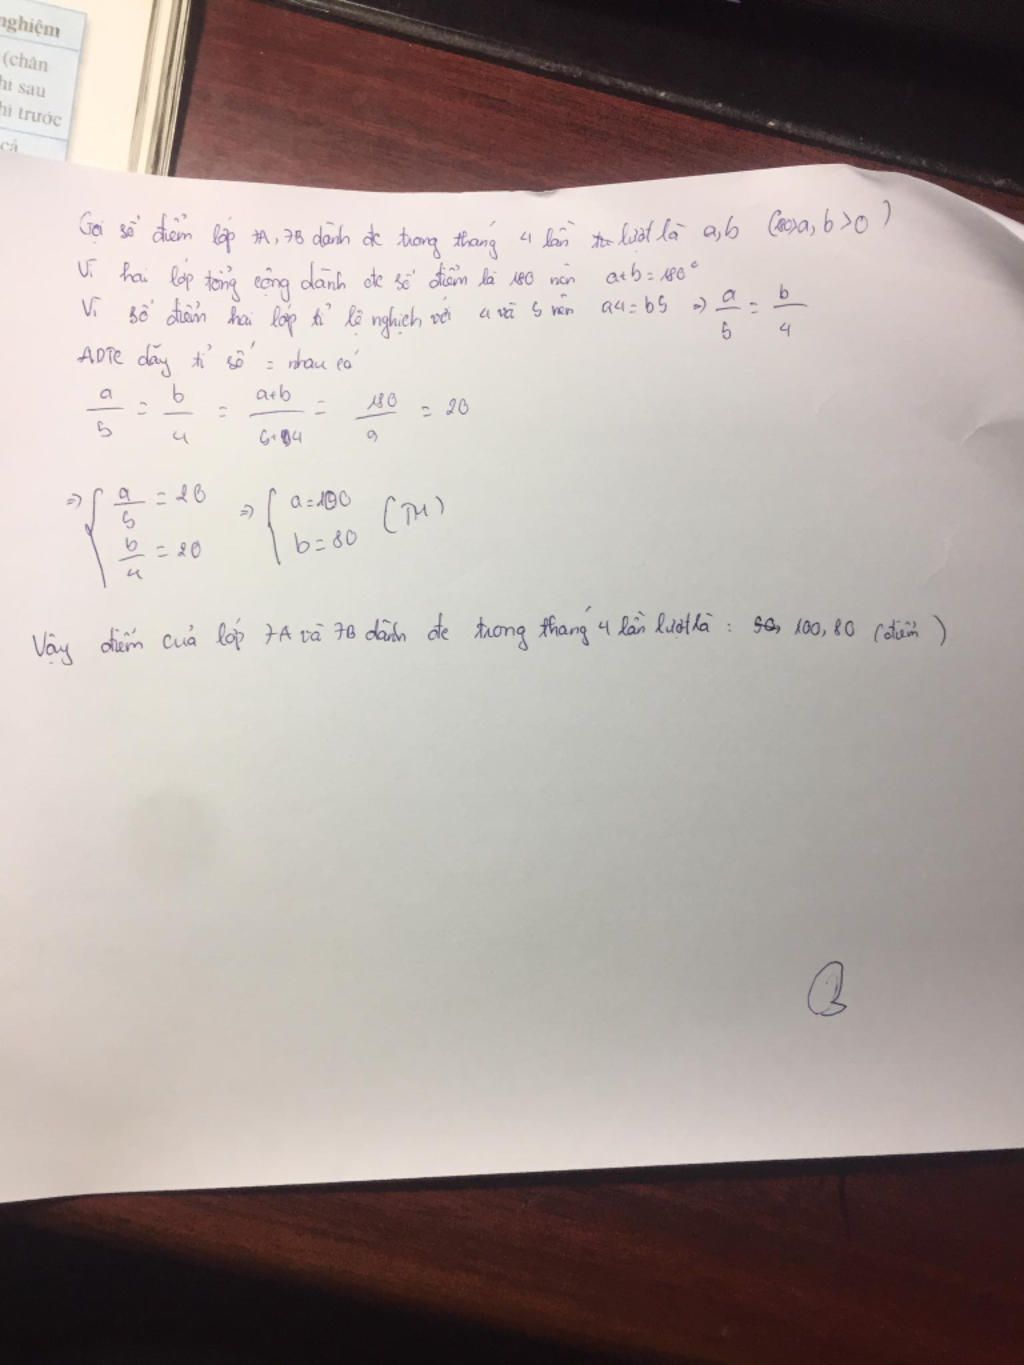 nghiệm
(chân
hi sau
hi trước
cả
Gọi số điểm lớp 7A, 7B dành đc trong tháng 4 lần lượt là a,b (180>a, b>0)
Vì hai lớp tổng cộng dành đc số điểm là 180 nên a+b=180°
Vì số điểm hai lớp tỉ lệ nghịch với 4 và 5 nên a4=b5 => a/5 = b/4
ADTC dãy tỉ số = nhau có
a/5 = b/4 = a+b/5+4 = 180/9 = 20
=> { a/5 = 20 => { a=100 (TM)
b/4 = 20 b=80
Vậy điểm của lớp 7A và 7B dành đc trong tháng 4 lần lượt là: 100, 80 (điểm)